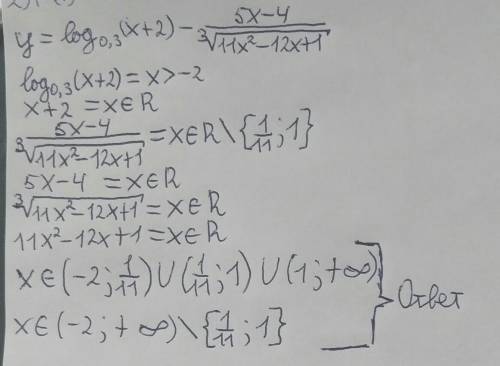 y = log₀,₃(x+2) - (5x-4)/∛(11x²-12x+1)
log₀,₃(x+2) = x>-2
x+2 = x∈R
(5x-4)/∛(11x²-12x+1) = x∈R\{1/11;1}
5x-4 = x∈R
∛(11x²-12x+1) = x∈R
11x²-12x+1 = x∈R
x∈(-2;1/11)∪(1/11;1)∪(1;+∞)
x∈(-2;+∞)\{1/11;1}
Ответ